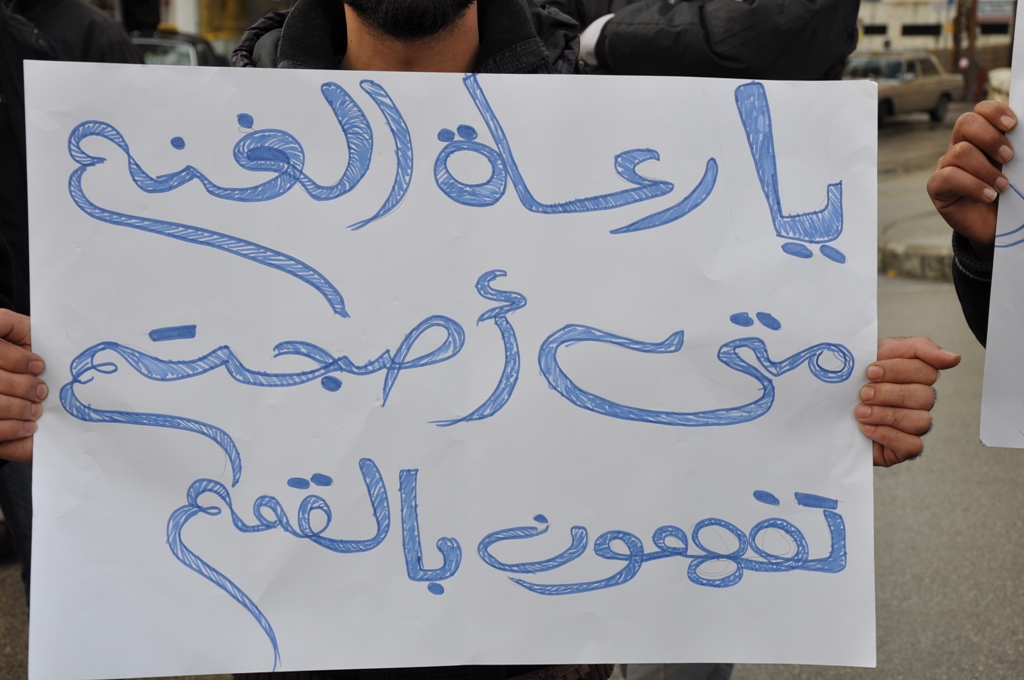 يا رعاة الغنم
متى أصبحتم
تفهمون بالقمم